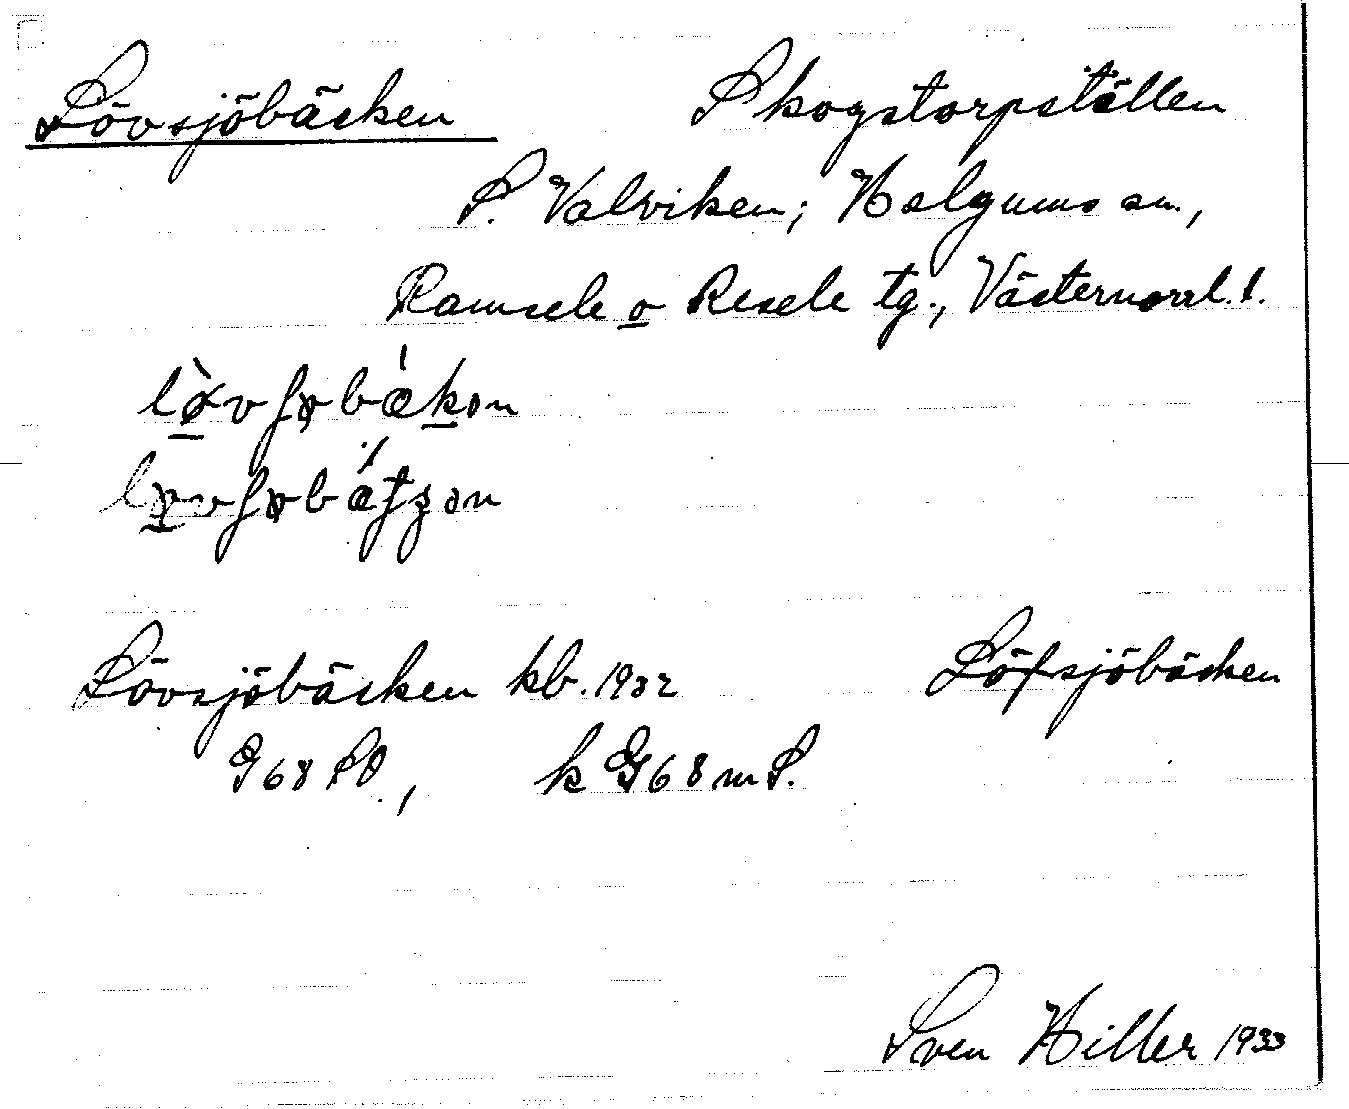 Lövsjöbäcken Skogstorpställen
S. Valviken; Helgums sn.,
Ramsele o Resele tg., Västernorrl. l.
Lövsjöbäcken kb. 1932 Löfsjöbäcken
G68 SO, k G68 m S.
Sven Hiller 1933